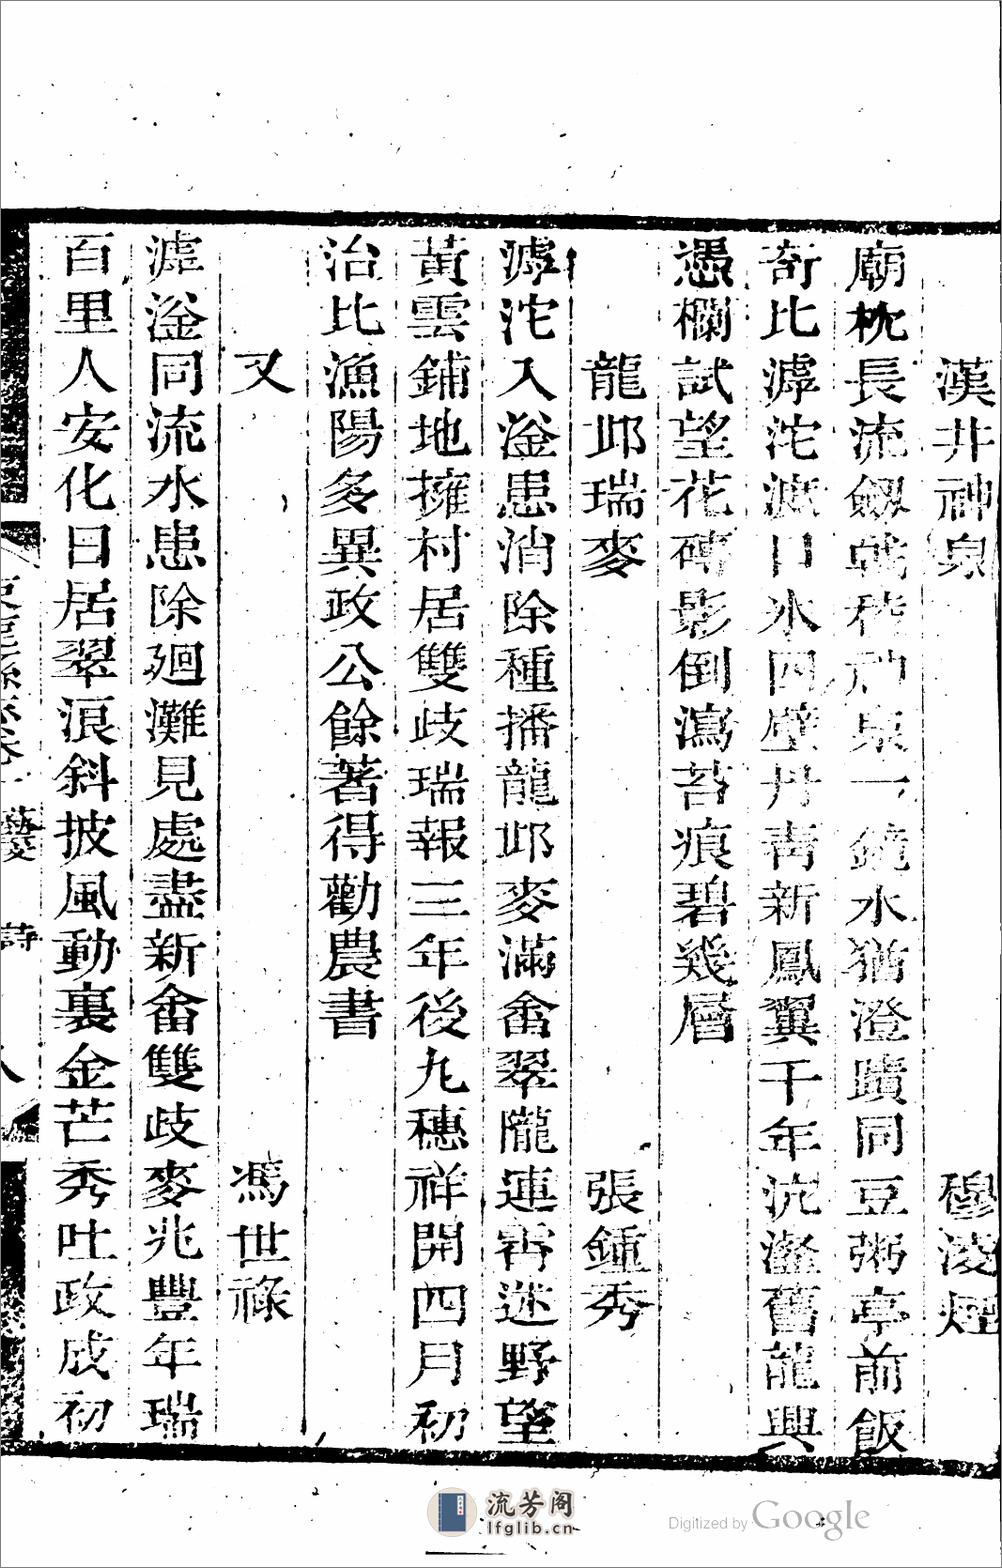 漢井神泉 穆凌煙
廟枕長流劔戟稜神泉一鏡水猶澄蹟同豆粥亭前飯
奇比滹沱渡口氷四壁丹青新鳳翼千年沆瀣舊龍興
憑欄試望花磚影倒瀉苔痕碧幾層
龍邱瑞麥 張鍾秀
滹沱入滏患消除種播龍邱麥滿畬翠隴連霄迷野望
黃雲鋪地擁村居雙歧瑞報三年後九穗祥開四月初
治比漁陽多異政公餘著得勸農書
又 馮世祿
滹滏同流水患除廻灘見處盡新畬雙歧麥兆豐年瑞
百里人安化日居翠浪斜披風動裏金芒秀吐政成初
藝 詩
八
流芳阁
lfglib.cn
Digitized by Google